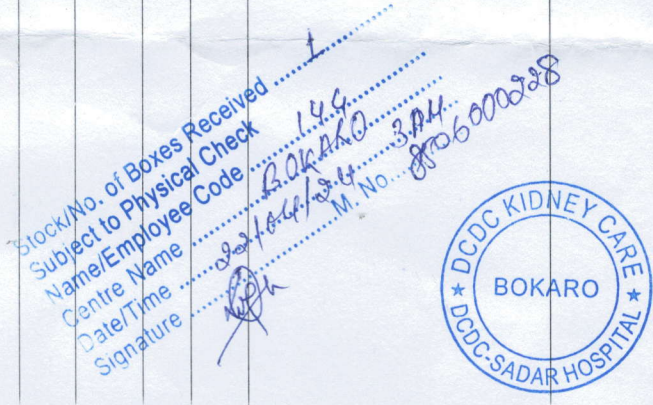 Stock/No. of Boxes Received ........ 1 ........
Subject to Physical Check
Name/Employee Code ........ 144 ........
Centre Name ........ BOKARO ........
Date/Time ........ 22/04/24 ........ 3 P.M.
Signature ........ M. No. ... 8506000228
DCDC KIDNEY CARE
BOKARO
★ DCDC-SADAR HOSPITAL ★